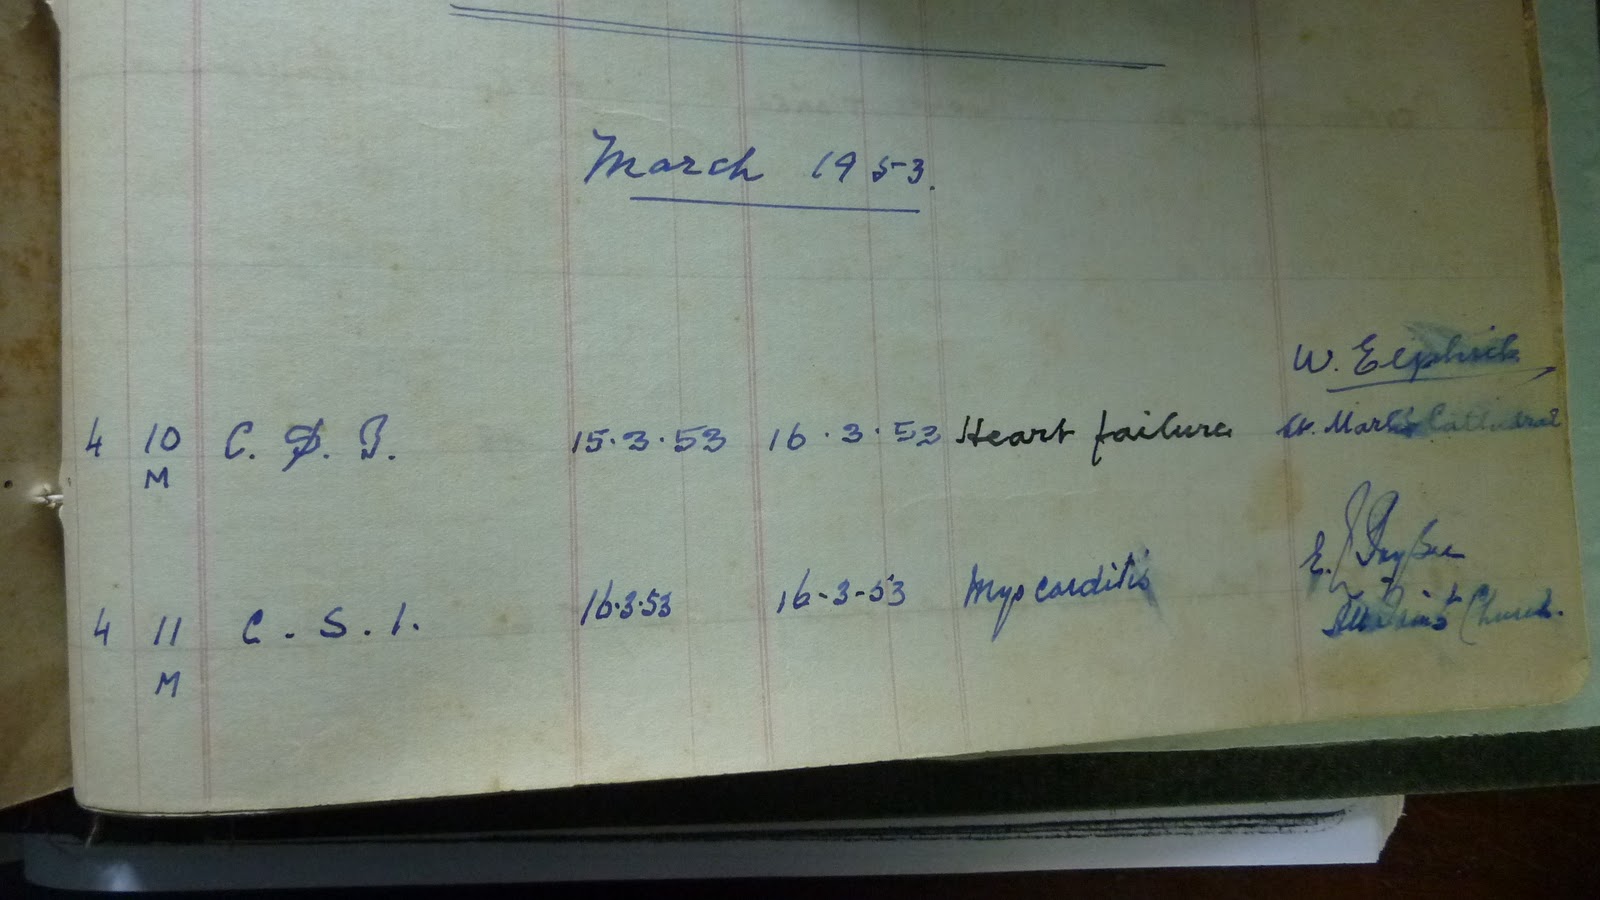 March 1953.
W. Elphick
4 10 C. D. B. 15.3.53 16.3.53 Heart failure St. Mark's Cathedral
M
E.
4 11 C. S. I. 16.3.53 16-3-53 Myocarditis
Church.
M